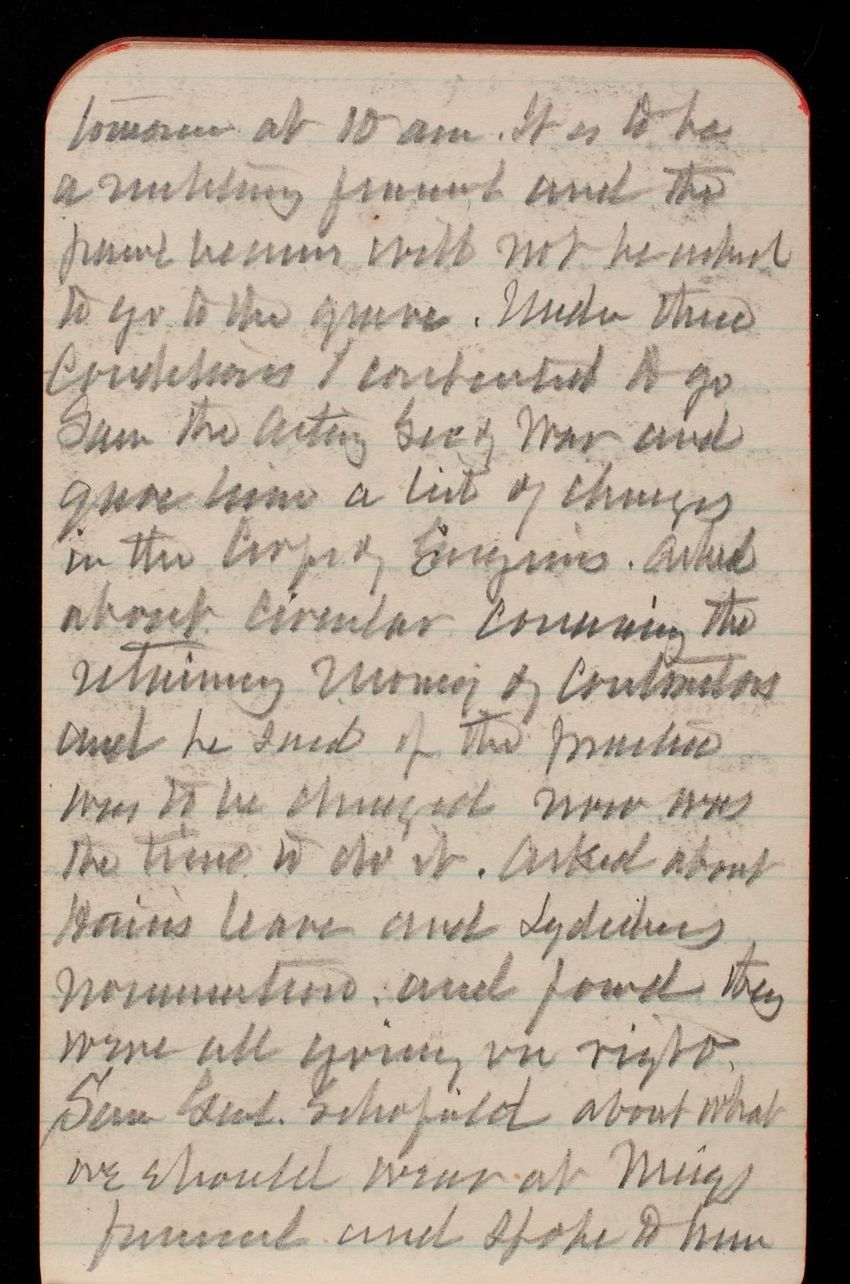 tomorrow at 10 am. It is to be
a military funeral and the
pawl bearers will not be asked
to go to the grave. Under these
Conditions I consented to go
Saw the Acting Sec of War and
gave him a list of changes
in the Corps of Engineers. Asked
about Circular concerning the
retaining money of Contractors
and he said if the practice
was to be changed now was
the time to do it. Asked about
Hains leave and Lydeckers
nomination. and found they
were all going on right.
Saw Genl. Schofield about what
we should wear at Meigs
funeral and spoke to him